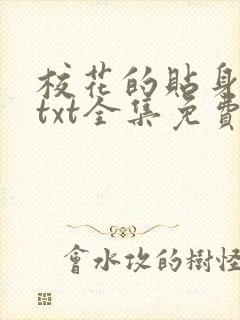 校花的貼身
txt全集免費
會水攻的樹怪